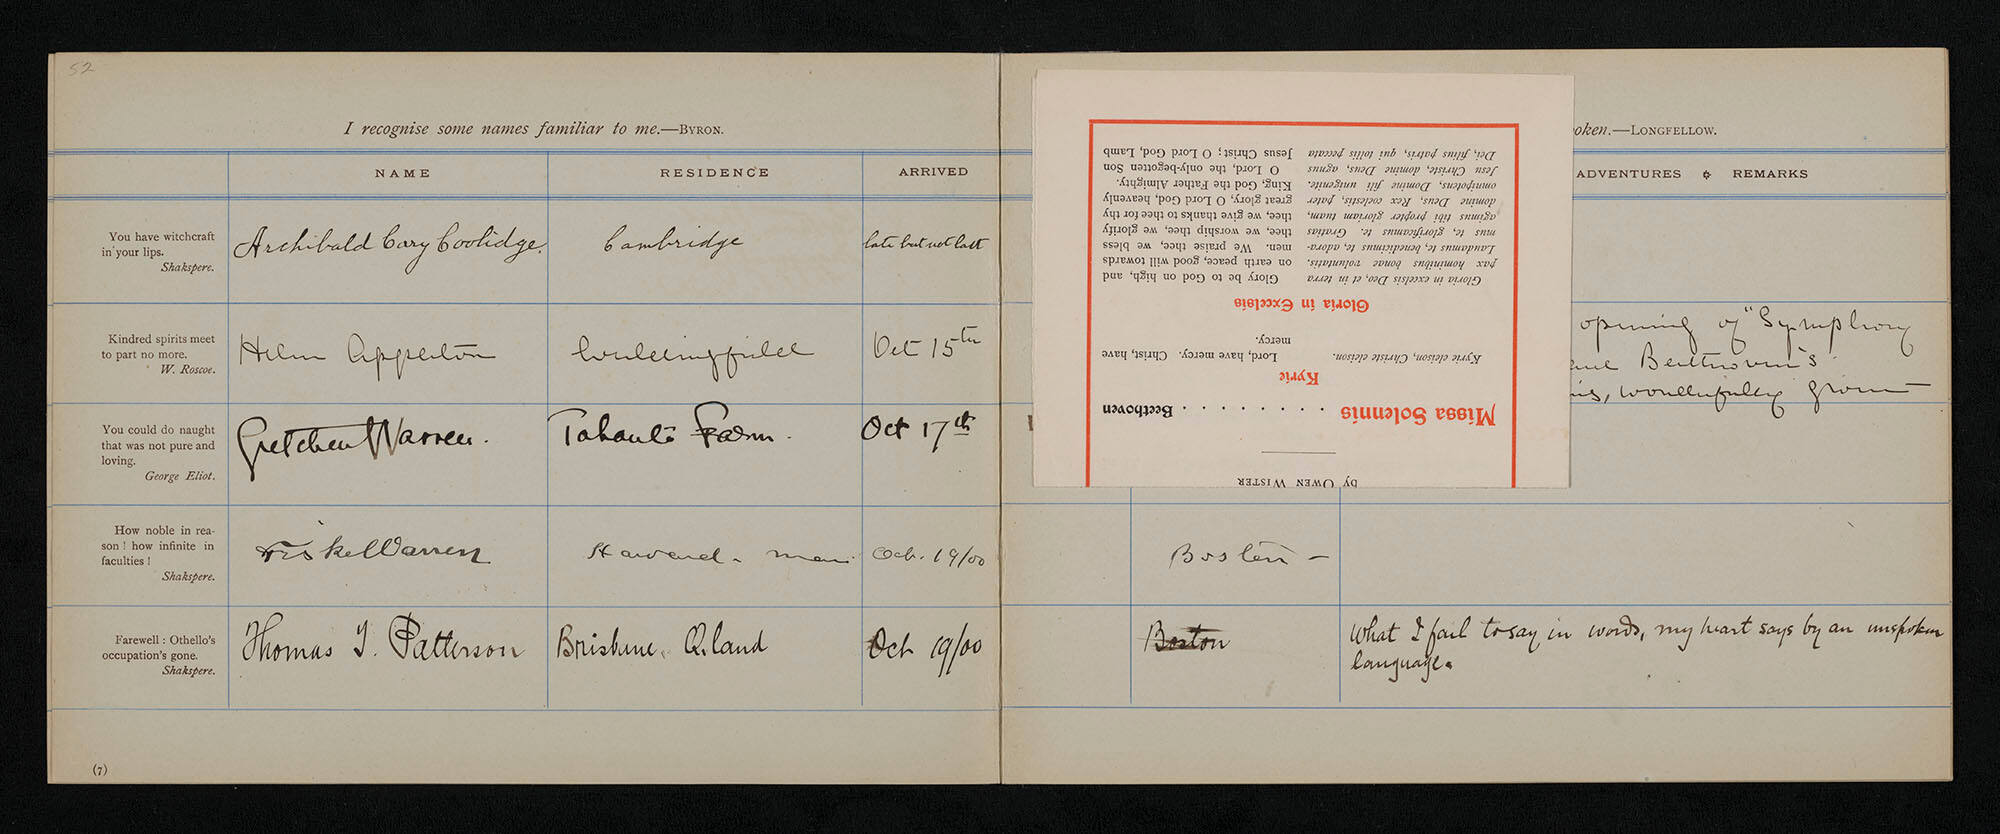 52
I recognise some names familiar to me.—BYRON.
NAME RESIDENCE ARRIVED
You have witchcraft
in your lips.
Shakspere.
Archibald Cary Coolidge. Cambridge late but not last
Kindred spirits meet
to part no more.
W. Roscoe.
Appleton Oct 15th
You could do naught
that was not pure and
loving.
George Eliot.
Gretchen Warren. Farm. Oct 17th
How noble in rea-
son! how infinite in
faculties!
Shakspere.
Fiske Warren Harvard. Oct. 19/00
Farewell: Othello's
occupation's gone.
Shakspere.
Thomas J. Patterson Brisbane. Q.land Oct 19/00
(7)
oken.—LONGFELLOW.
ADVENTURES & REMARKS
opening of "Symphony
Beethoven's
wonderfully given
Boston –
Boston
What I fail to say in words, my heart says by an unspoken
language.
by OWEN WISTER
Missa Solennis . . . . . . . . Beethoven
Kyrie
Kyrie eleison, Christe eleison.
Lord, have mercy. Christ, have
mercy.
Gloria in Excelsis
Gloria in excelsis Deo, et in terra
pax hominibus bonae voluntatis.
Laudamus te, benedicimus te, adora-
mus te, glorificamus te. Gratias
agimus tibi propter gloriam tuam,
domine Deus, Rex coelestis, pater
omnipotens, Domine fili unigenite.
Jesu Christe, domine Deus, agnus
Dei, filius patris, qui tollis peccata
Glory be to God on high, and
on earth peace, good will towards
men. We praise thee, we bless
thee, we worship thee, we glorify
thee, we give thanks to thee for thy
great glory, O Lord God, heavenly
King, God the Father Almighty.
O Lord, the only-begotten Son
Jesus Christ; O Lord God, Lamb